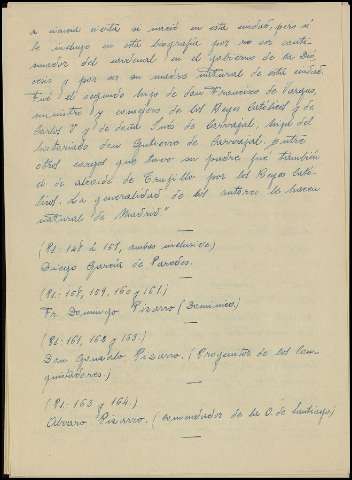 a ciencia cierta si nació en esta ciudad, pero sí
le incluyo en esta biografía por no ser conti-
nuador del cardenal en el gobierno de la Dió-
cesis y por ser su madre natural de esta ciudad.
Fué el segundo hijo de don Francisco de Vargas,
ministro y consejero de los Reyes Católicos y de
Carlos V y de doña Inés de Carvajal, hija del
licenciado don Gutierre de Carvajal. Entre
otros cargos que tuvo su padre fué también
el de alcaide de Trujillo por los Reyes Cató-
licos. La generalidad de los autores le hacen
natural de Madrid"
(Ps.- 148 á 151, ambas inclusive)
Diego García de Paredes.
(Ps.- 158, 159, 160 y 161.)
Fr. Domingo Pizarro (Dominico.)
(Ps.- 161, 162 y 163.)
Don Gonzalo Pizarro. (Progenitor de los Con-
quistadores.)
(Ps.- 163 y 164.)
Alvaro Pizarro. (Comendador de la O. de Santiago)